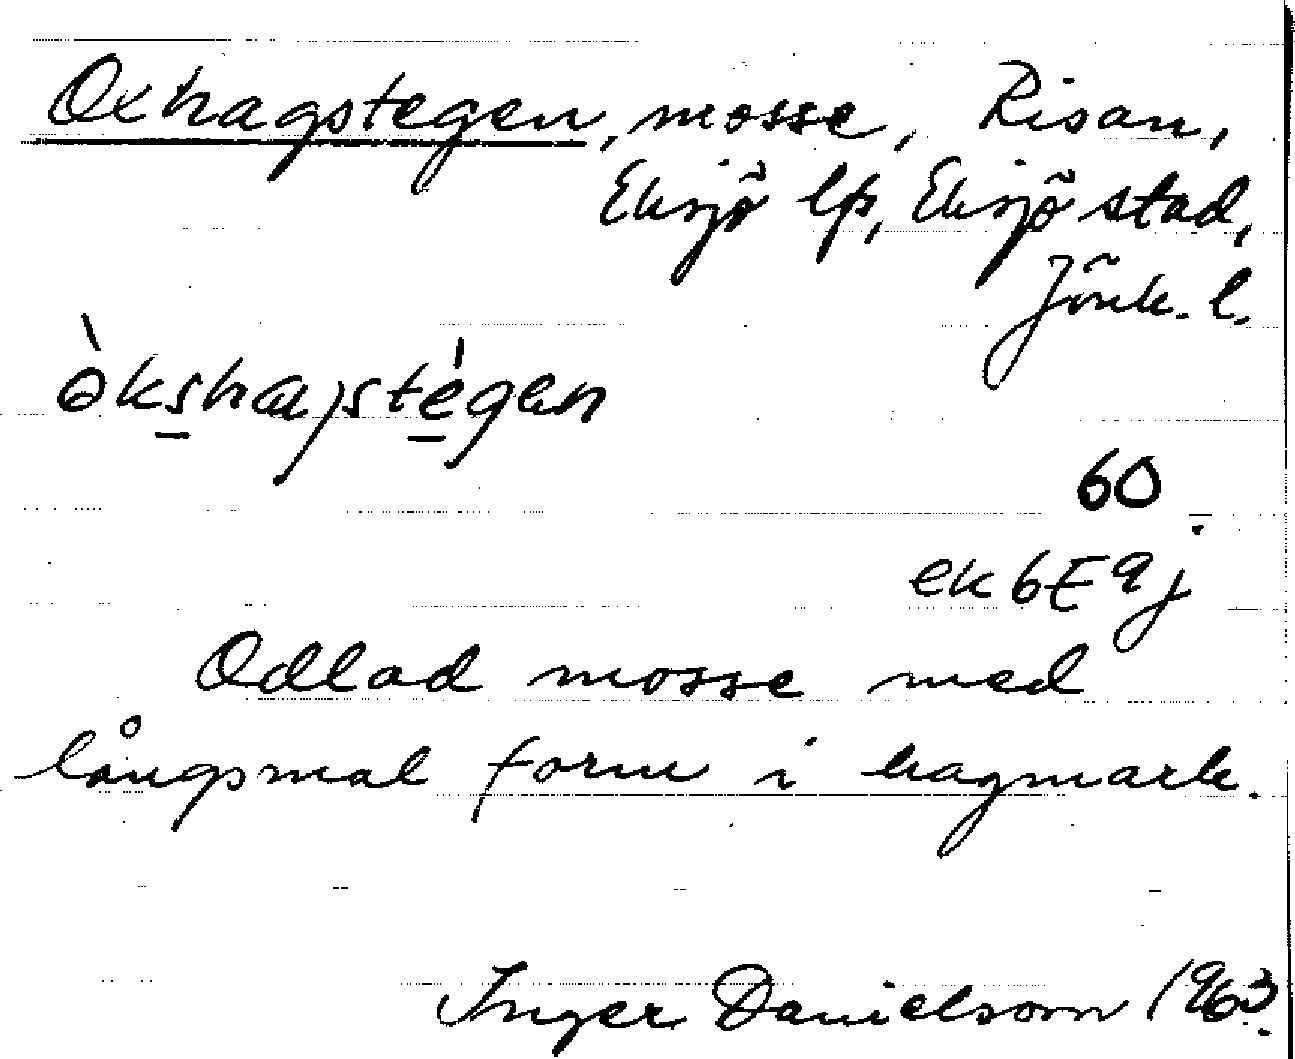 Oxhagstegen, mosse, Risan,
Eksjö lfs, Eksjö stad,
Jönk. l.
òkshagstègen
60
ek 6E9j
Odlad mosse med
långsmal form i hagmark.
Inger Danielsson 1963.